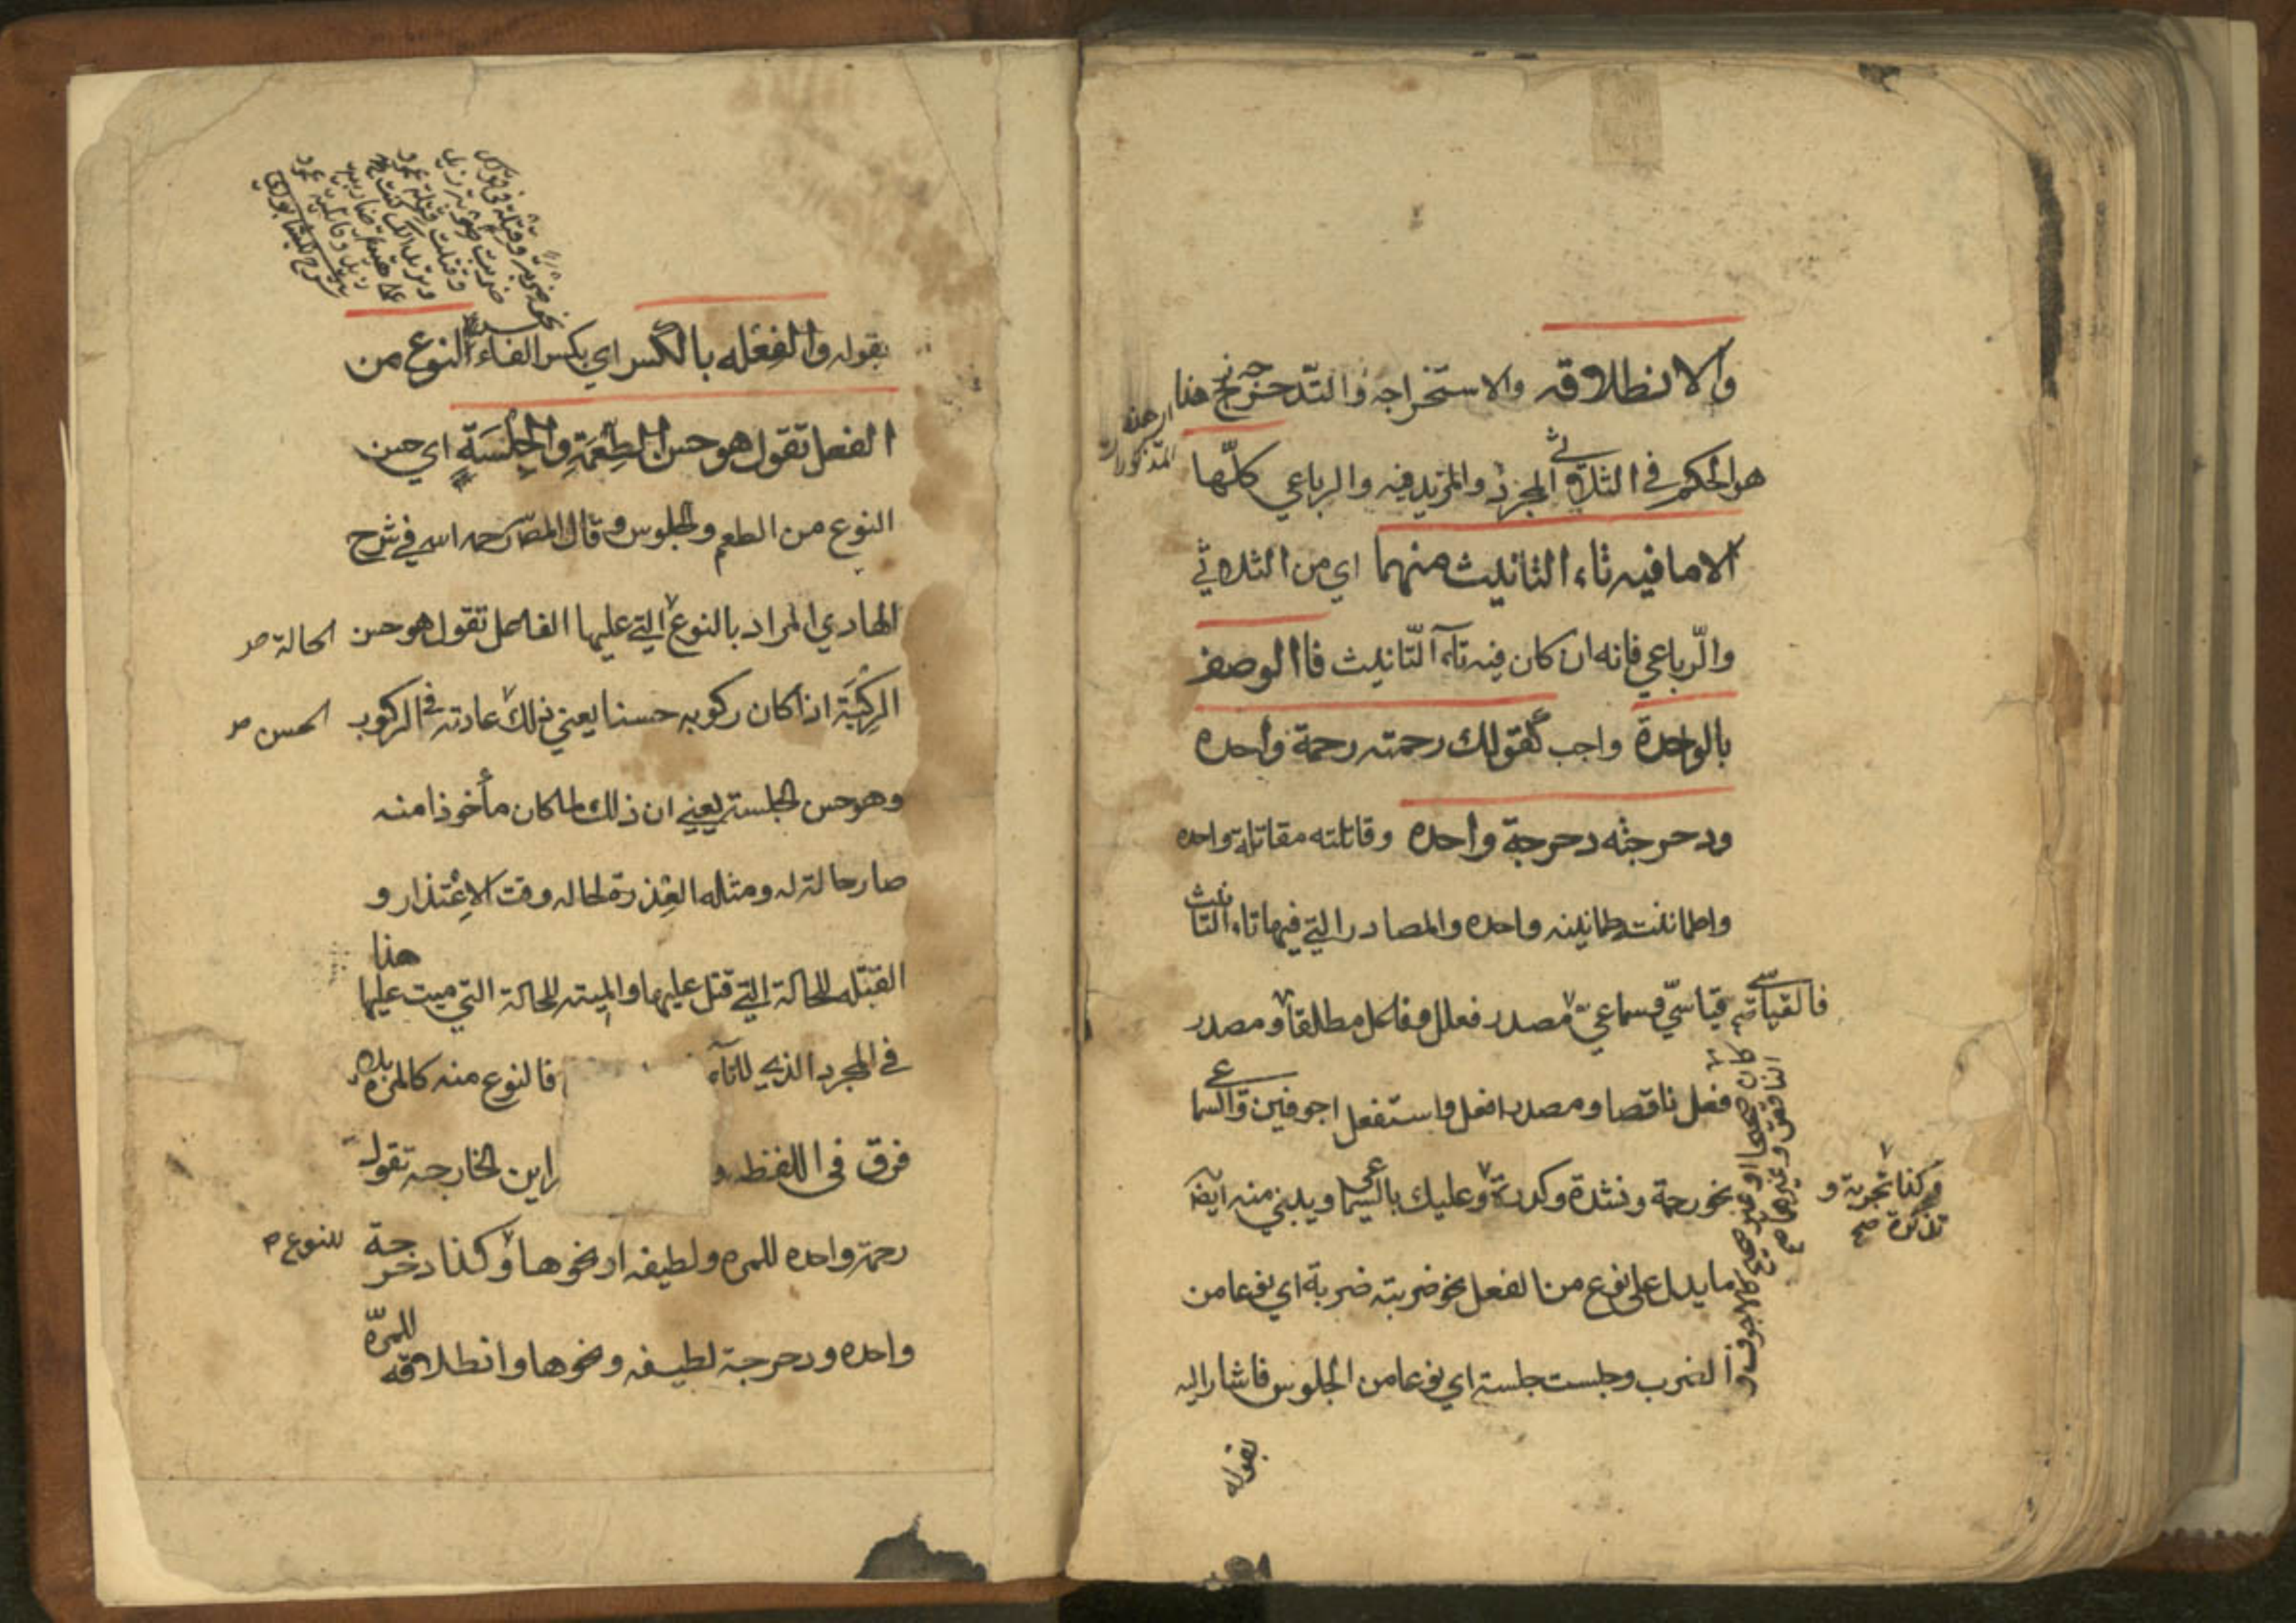 والانطلاقه والاستخراجه والتدحرجه وهذا
اي هذه
المذكورات
هو الحكم في الثلاثي المجرد والمزيد فيه والرباعي كلها
الا ما فيه تاء التانيث منهما اي من الثلاثي
والرباعي فانه ان كان فيه تاء التانيث فا الوصف
بالواحدة واجب كقولك رحمته رحمة واحده
ودحرجته دحرجة واحده وقاتلته مقاتلة واحده
واطمانت طمانينه واحده والمصادر التي فيها تاء التانيث
قياسي وسماعي فالقياسي مصدر فعلل وفاعل مطلقا ومصدر
فعل ناقصا ومصدر افعل واستفعل اجوفين والسماعي
نحو رحمة ونشدة وكدرة وعليك بالسماعي ويبني منه ايضا
ما يدل على نوع من الفعل نحو ضربته ضربة اي نوعا من
الضرب وجلست جلسة اي نوعا من الجلوس فاشار اليه
كان صحيحا او غير صحيح كالاجوف و
الناقص وغيرهما صح
وكذا تجربة و
تذكرة صح
بقوله
بقوله والفعله بالكسر اي بكسر الفاء النوع من
الفعل تقول هو حسن الطعمة والجلسة اي حسن
النوع من الطعم والجلوس وقال المص رحمه الله في شرح
الهادي المراد بالنوع التي عليها الفاعل تقول هو حسن
الحالة صح
الركبة اذا كان ركوبه حسنا يعني ذلك عادته في الركوب
الحسن صح
وهو حسن الجلسة يعني ان ذلك لما كان مأخوذا منه
صار حالة له ومثله العذرة لحاله وقت الاعتذار و
القتله للحالة التي قتل عليها والميته للحالة التي ميت عليها
هذا
في المجرد الذي لا تاء فالنوع منه كالمرة بلا
فرق في اللفظ و راين الخارجه تقول
رحمة واحده للمره ولطيفه او نحوها وكذا دحرجة
للنوع صح
واحده ودحرجة لطيفه ونحوها وانطلاقه
للمرة